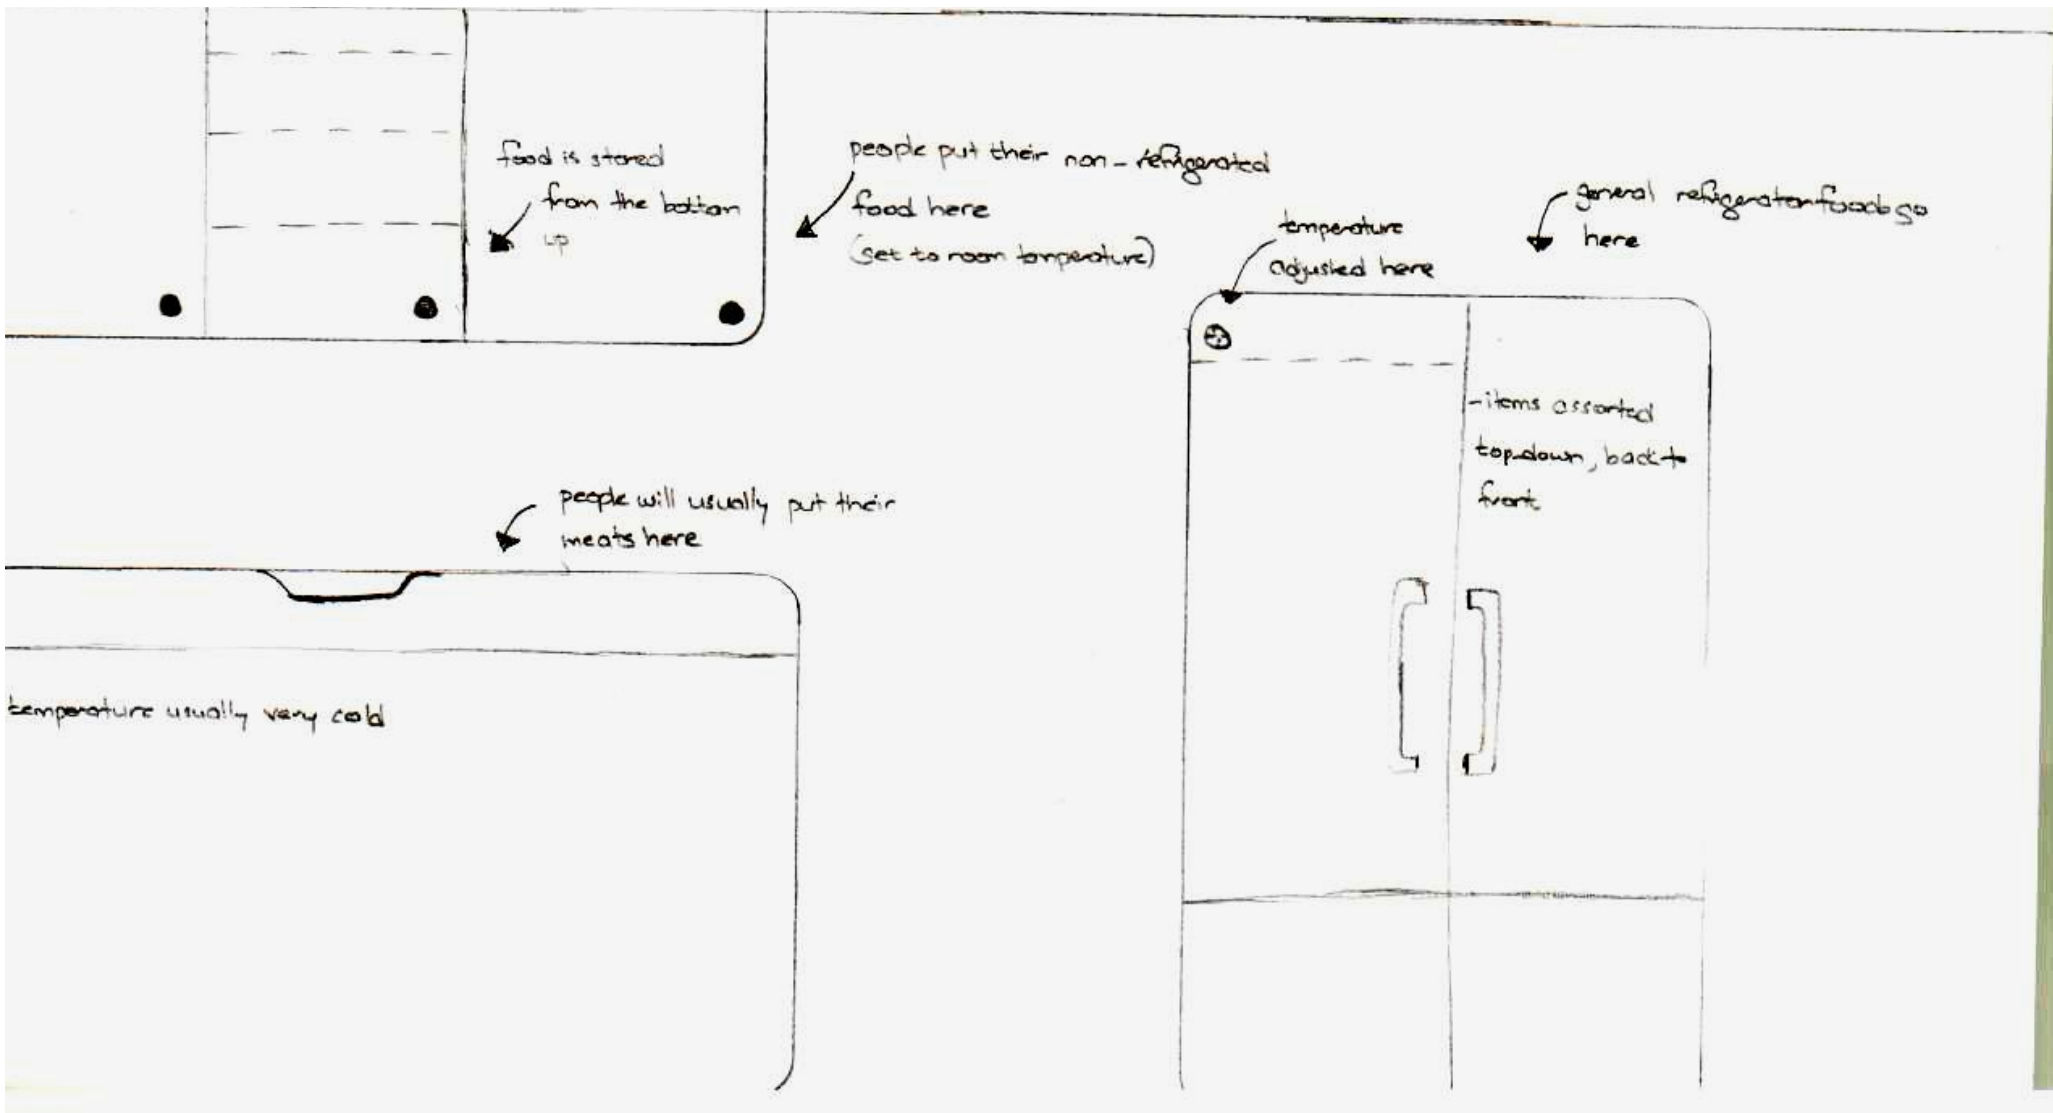 food is stored
from the bottom
up
people put their non-refrigerated
food here
(set to room temperature)
temperature
adjusted here
general refrigerator foods go
here
-items assorted
top down, back to
front
people will usually put their
meats here
temperature usually very cold